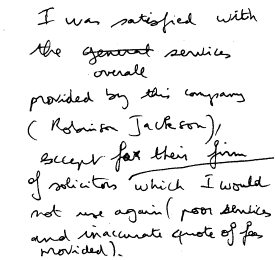 I was satisfied with
the general services
overale
provided by this company
(Robinson Jackson),
except for their firm
of solicitors which I would
not use again (poor services
and inaccurate quote of fees
provided).